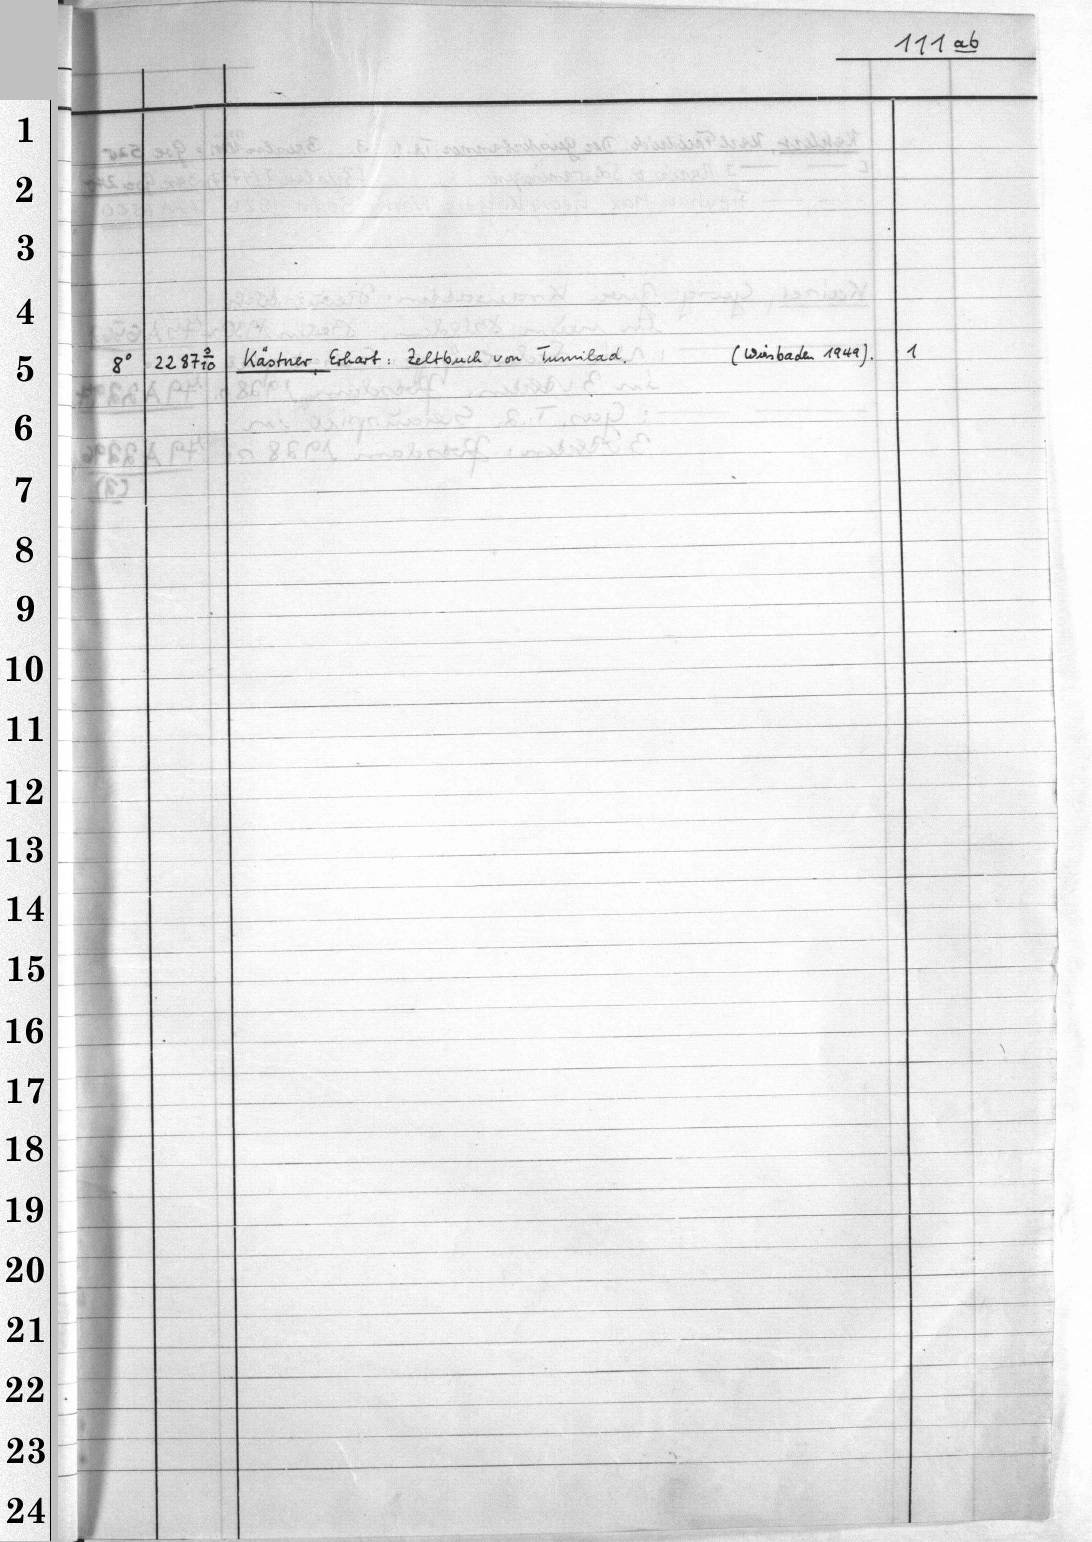 111 ab
1
2
3
4
5 8° 2287 9/10 Kästner, Erhart: Zeltbuch von Tumilad. (Wiesbaden 1949). 1
6
7
8
9
10
11
12
13
14
15
16
17
18
19
20
21
22
23
24